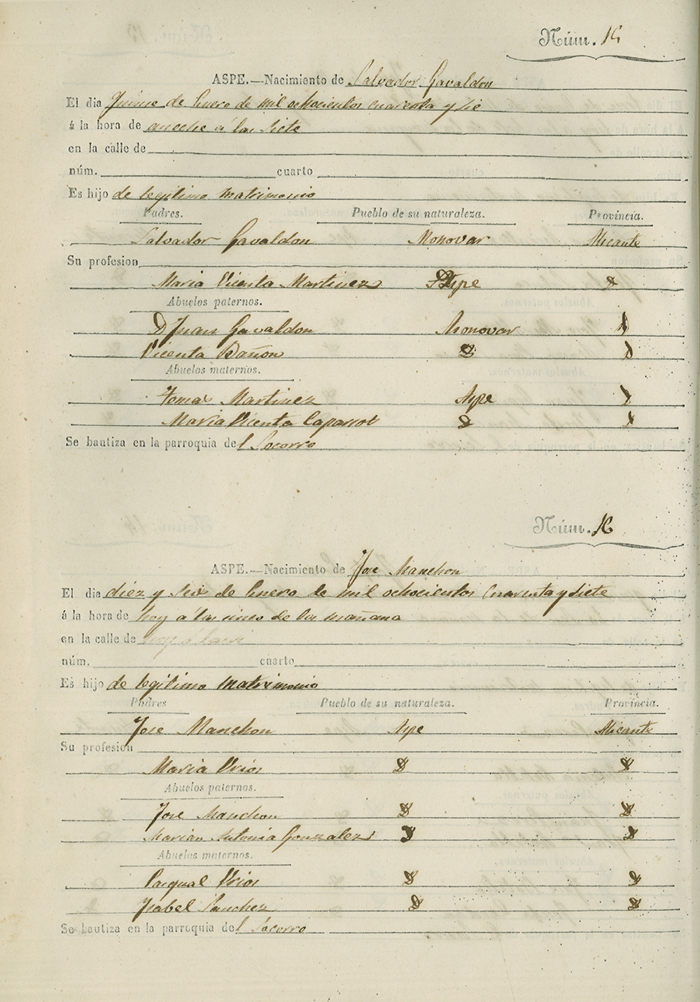 Núm. 15
ASPE.—Nacimiento de Salvador Gavaldon
El dia Quince de Enero de mil ochocientos cuarenta y sie
á la hora de anoche á las siete
en la calle de
núm. cuarto
Es hijo de legitimo matrimonio
Padres. Pueblo de su naturaleza. Provincia.
Salvador Gavaldon Monovar Alicante
Su profesion
Maria Vicenta Martinez Aspe D
Abuelos paternos.
D Juan Gavaldon Monovar D
Vicenta Bañon D D
Abuelos maternos.
Tomas Martinez Aspe D
Maria Vicenta Caparros D D
Se bautiza en la parroquia del Socorro
Núm. 16
ASPE.—Nacimiento de Jose Manchon
El dia diez y seis de Enero de mil ochocientos cuarenta y siete
á la hora de hoy a las cinco de la mañana
en la calle de
núm. cuarto
Es hijo de legitimo matrimonio
Padres Pueblo de su naturaleza. Provincia.
Jose Manchon Aspe Alicante
Su profesion
Maria Urios D D
Abuelos paternos.
Jose Manchon D D
Marian Antonia Gonzalez D D
Abuelos maternos.
Pasqual Urios D D
Ysabel Sanchez D D
Se bautiza en la parroquia del Socorro